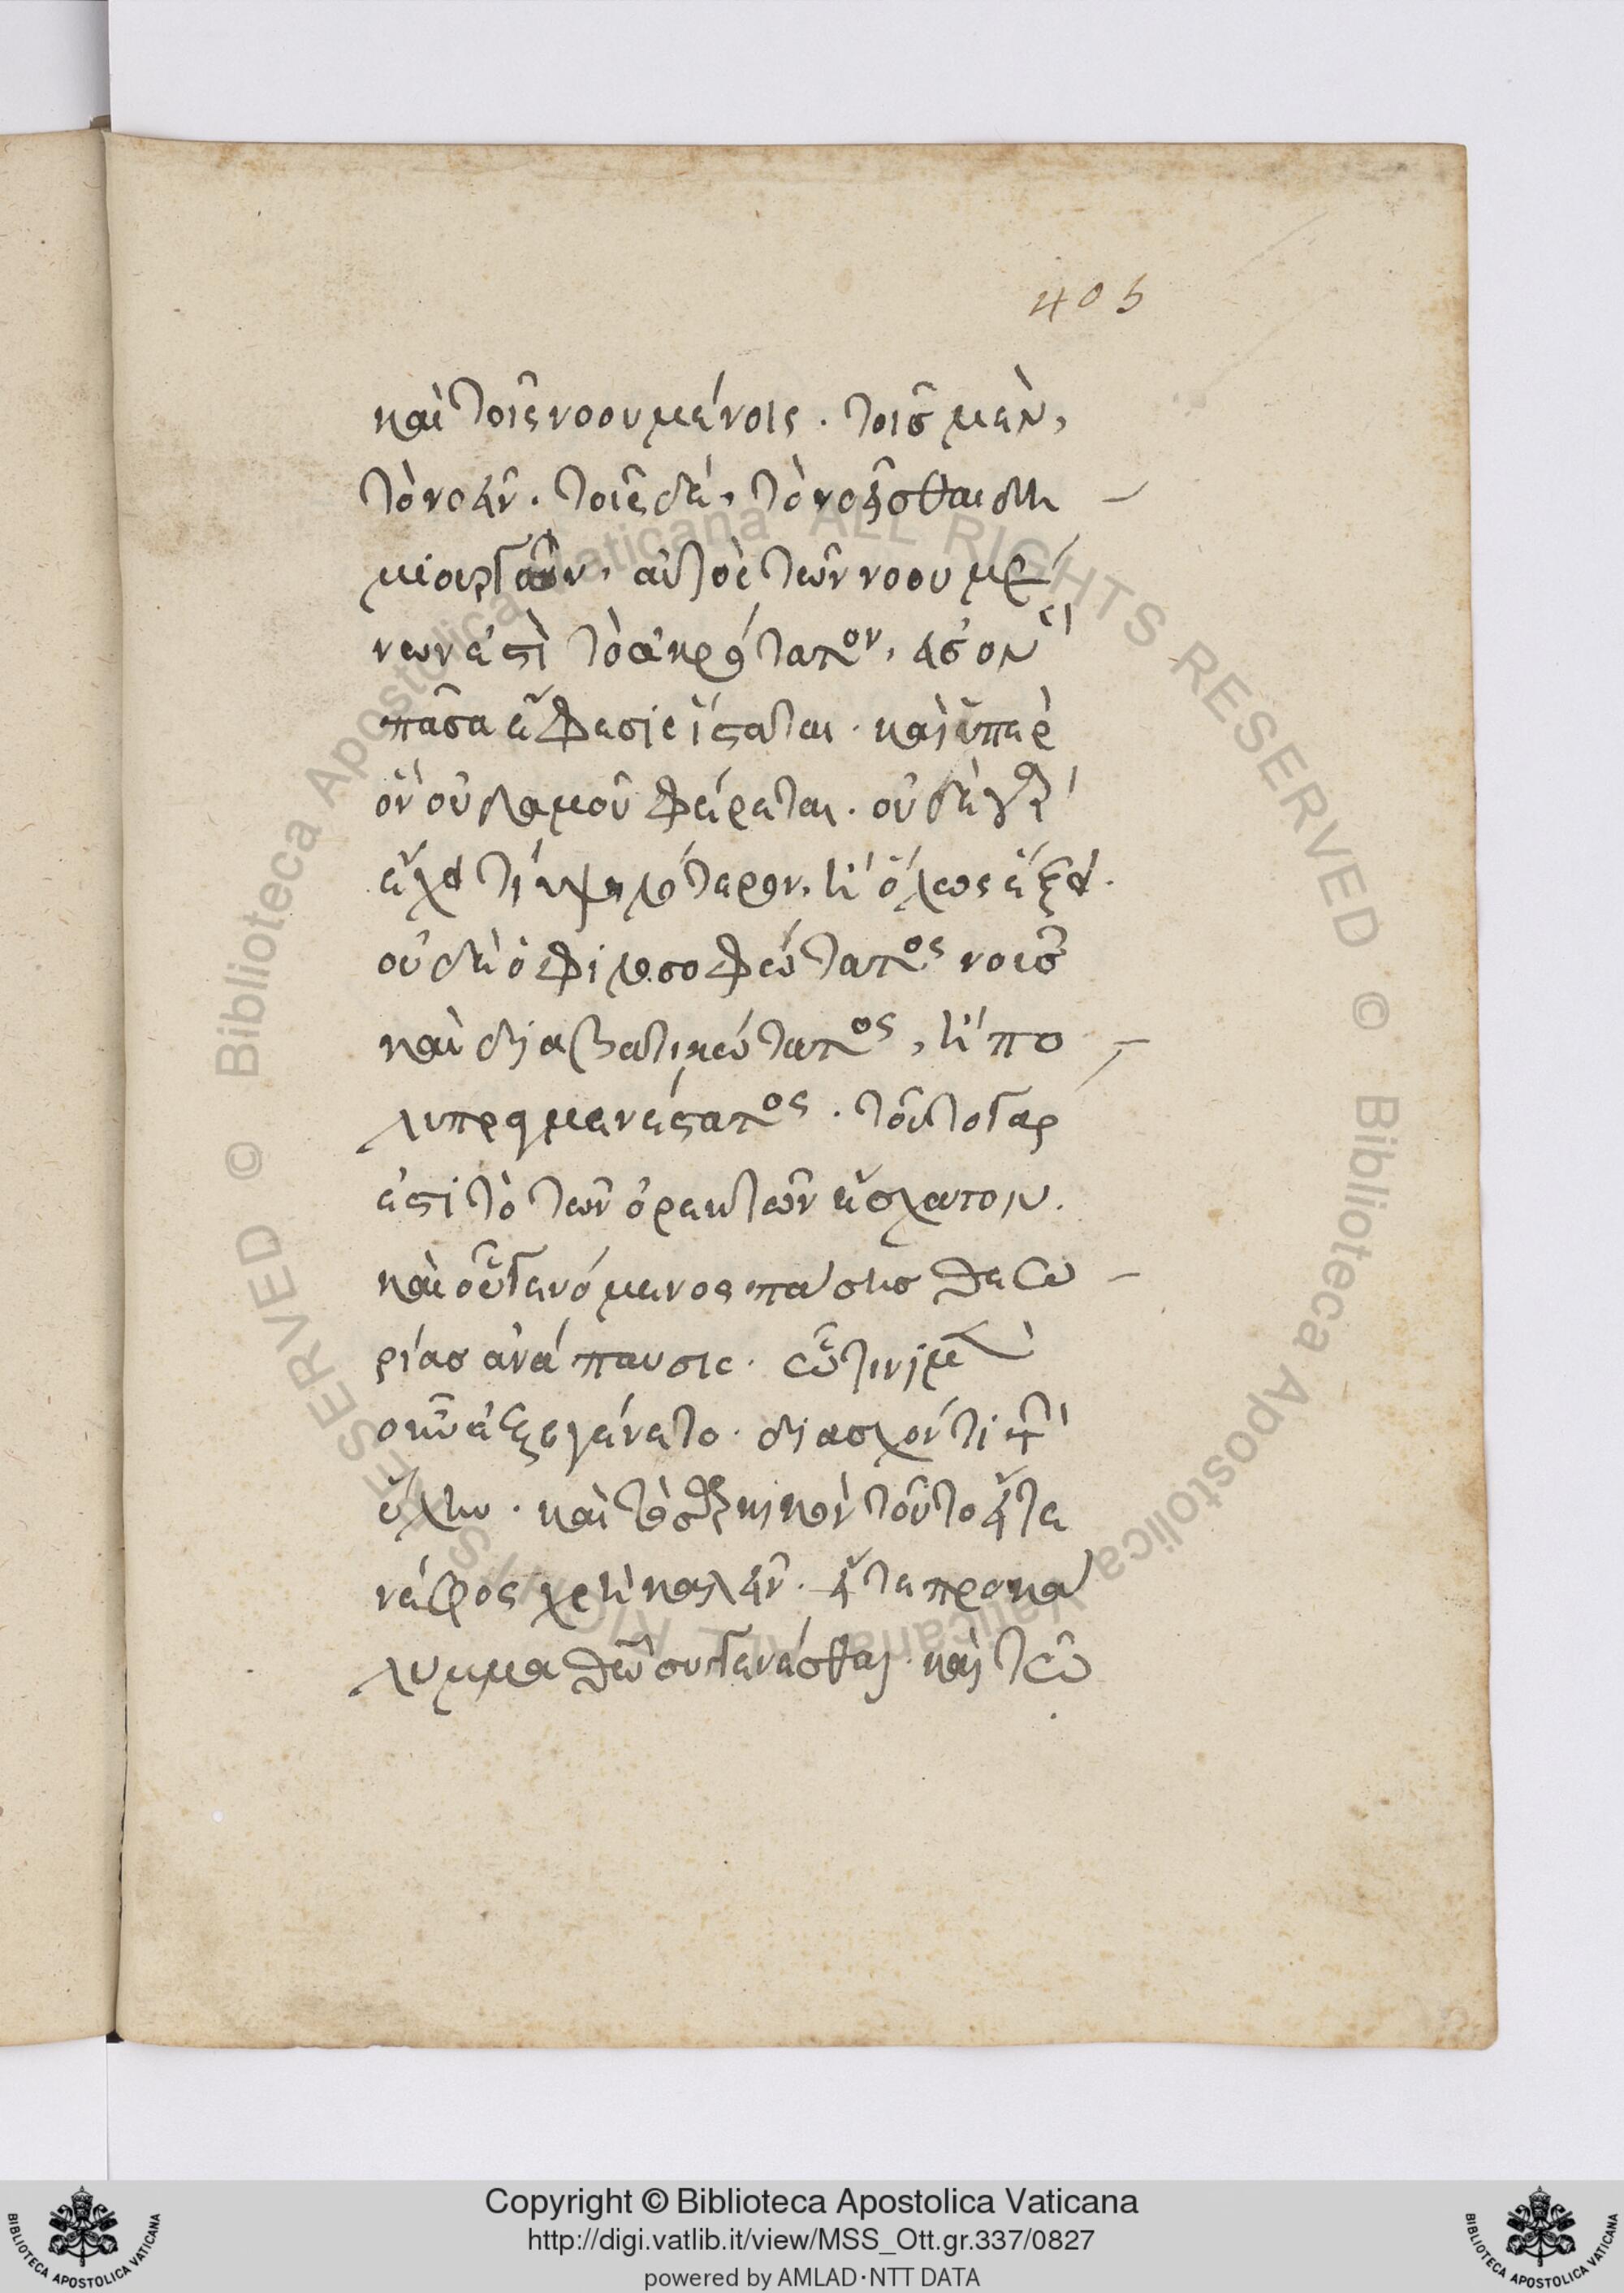 405
καὶ τοῖς νοουμένοις. τοῖς μὲν,
τὸ νοεῖν. τοῖς δέ, τὸ νοεῖσθαι δη
μιουργῶν, αὐτὸς τῶν νοουμέ
νων ἐστὶ τὸ ἀκρότατον, εἰς ὃν
πᾶσα ἔφεσις ἵσταται. καὶ ὑπὲρ
ὃν οὐδαμοῦ φέρεται. οὐδὲ γὰρ
ἔχει τί ὑψηλότερον, ἢ ὅλως ἕξει.
οὐδὲ ὁ φιλοσοφώτατος νοῦς
καὶ διαβατικώτατος, ἢ πο
λυπραγμονέστατος. τοῦτο γάρ
ἐστι τὸ τῶν ὀρεκτῶν ἔσχατον.
καὶ οὗ γενόμενος πάσης θεω
ρίας ἀνάπαυσις. ᾧτινι μὲν
οὖν ἐξεγένετο. διασχόντι τὴν
ὕλην. καὶ τὸ σαρκικὸν τοῦτο εἴτε
νέφος χρὴ καλεῖν. εἴτε προκά
λυμμα θεῷ συγγενέσθαι. καὶ τῷ
Copyright © Biblioteca Apostolica Vaticana
http://digi.vatlib.it/view/MSS_Ott.gr.337/0827
powered by AMLAD·NTT DATA
BIBLIOTECA APOSTOLICA VATICANA
BIBLIOTECA APOSTOLICA VATICANA
© Biblioteca Apostolica Vaticana ALL RIGHTS RESERVED
© Biblioteca Apostolica Vaticana ALL RIGHTS RESERVED